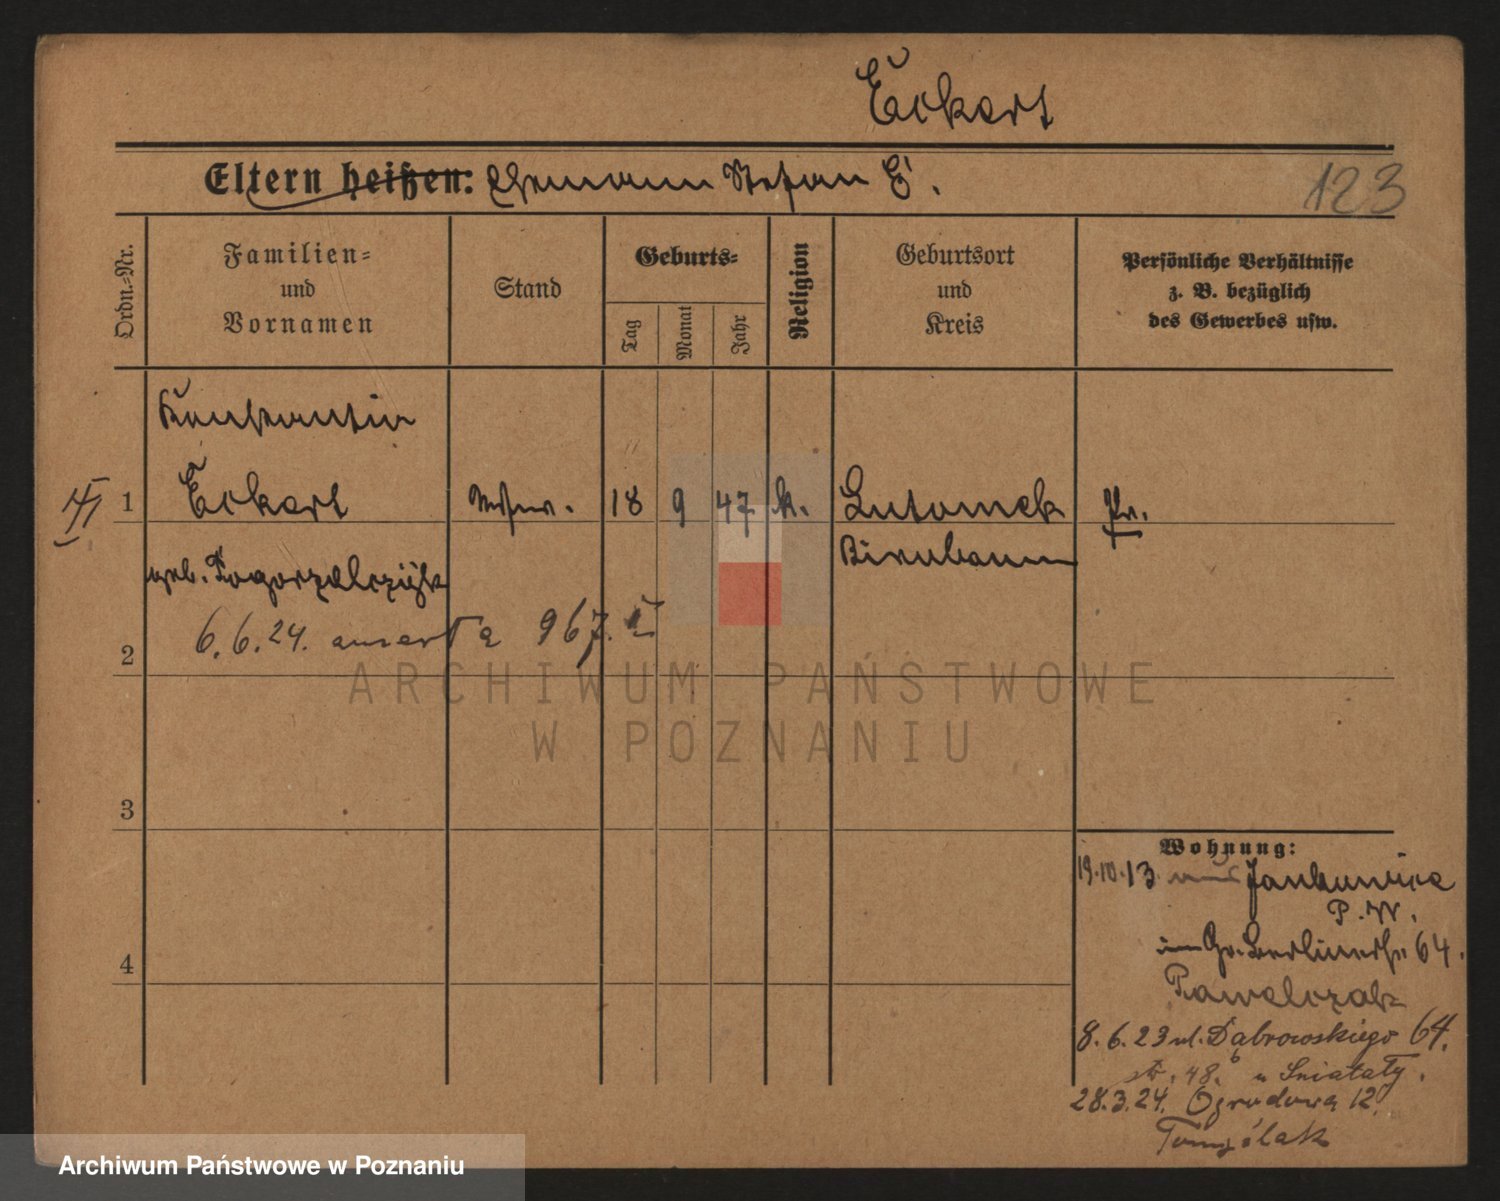 Eckert
Eltern heißen: Ehemann Stefan E.
123
Ordn.-Nr.
Familien-
und
Vornamen
Stand
Geburts-
Tag
Monat
Jahr
Religion
Geburtsort
und
Kreis
Persönliche Verhältnisse
z. B. bezüglich
des Gewerbes usw.
Konstantia
1 Eckert Witwe. 18 9 47 k. Lutomek Pr.
Birnbaum
geb. Pogorzelczyk
6.6.24. zmarła 967.
2
ARCHIWUM PAŃSTWOWE
W POZNANIU
3
Wohnung:
19.10.13 aus Jankowice
P.W.
Gr. Berlinerstr 64.
4
Pawelczak
8.6.23 ul. Dąbrowskiego 64.
48. u Śniatały.
28.3.24. Ogrodowa 12.
Tomyślak
Archiwum Państwowe w Poznaniu